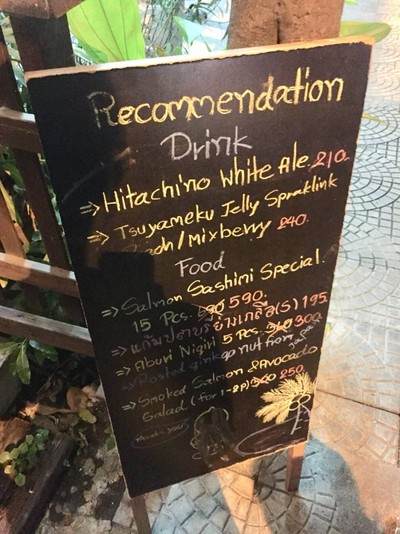 Recommendation
Drink
⇒ Hitachino White Ale 210.
⇒ Tsuyameku Jelly Spraklink
/Mixberry 240.
Food
⇒ Salmon Sashimi Special
15 Pcs. 590.
⇒ ย่างเกลือ(S) 195
⇒ Aburi Nigiri 5 Pcs. 300.
nut from
⇒ Smoked Salmon & Avocado
Salad (for 1-2P) 250.
thank you